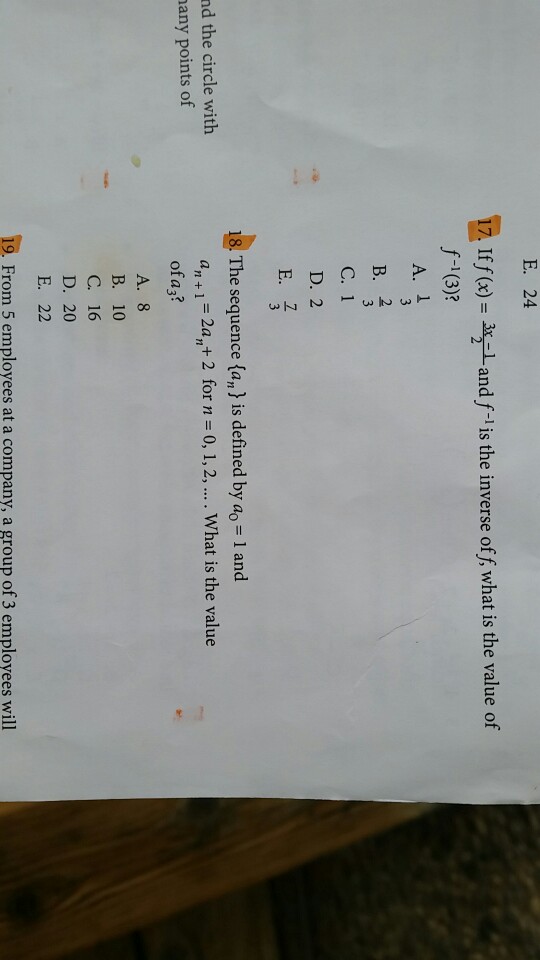 E. 24
17. If f(x) = 3x-1/2 and f⁻¹ is the inverse of f, what is the value of
f⁻¹(3)?
A. 1/3
B. 2/3
C. 1
D. 2
E. 7/3
18. The sequence {aₙ} is defined by a₀ = 1 and
aₙ₊₁ = 2aₙ + 2 for n = 0, 1, 2, .... What is the value
of a₃?
A. 8
B. 10
C. 16
D. 20
E. 22
19. From 5 employees at a company, a group of 3 employees will
nd the circle with
any points of